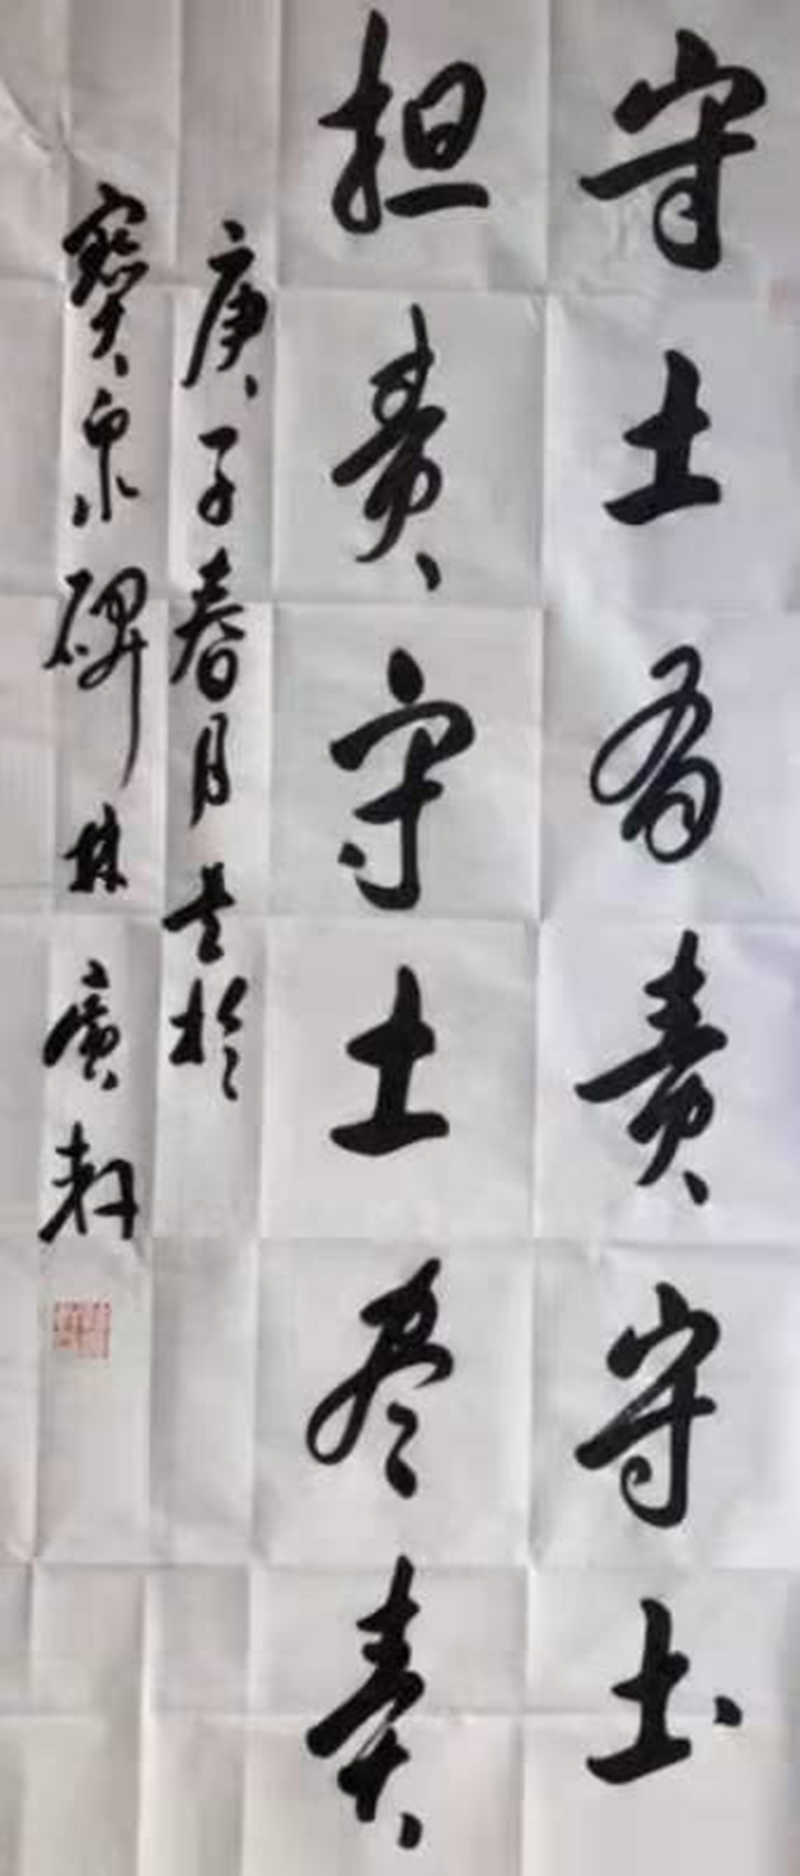 守土有责守土
担责守土尽责
庚子春月书于
宝泉碑林广轩